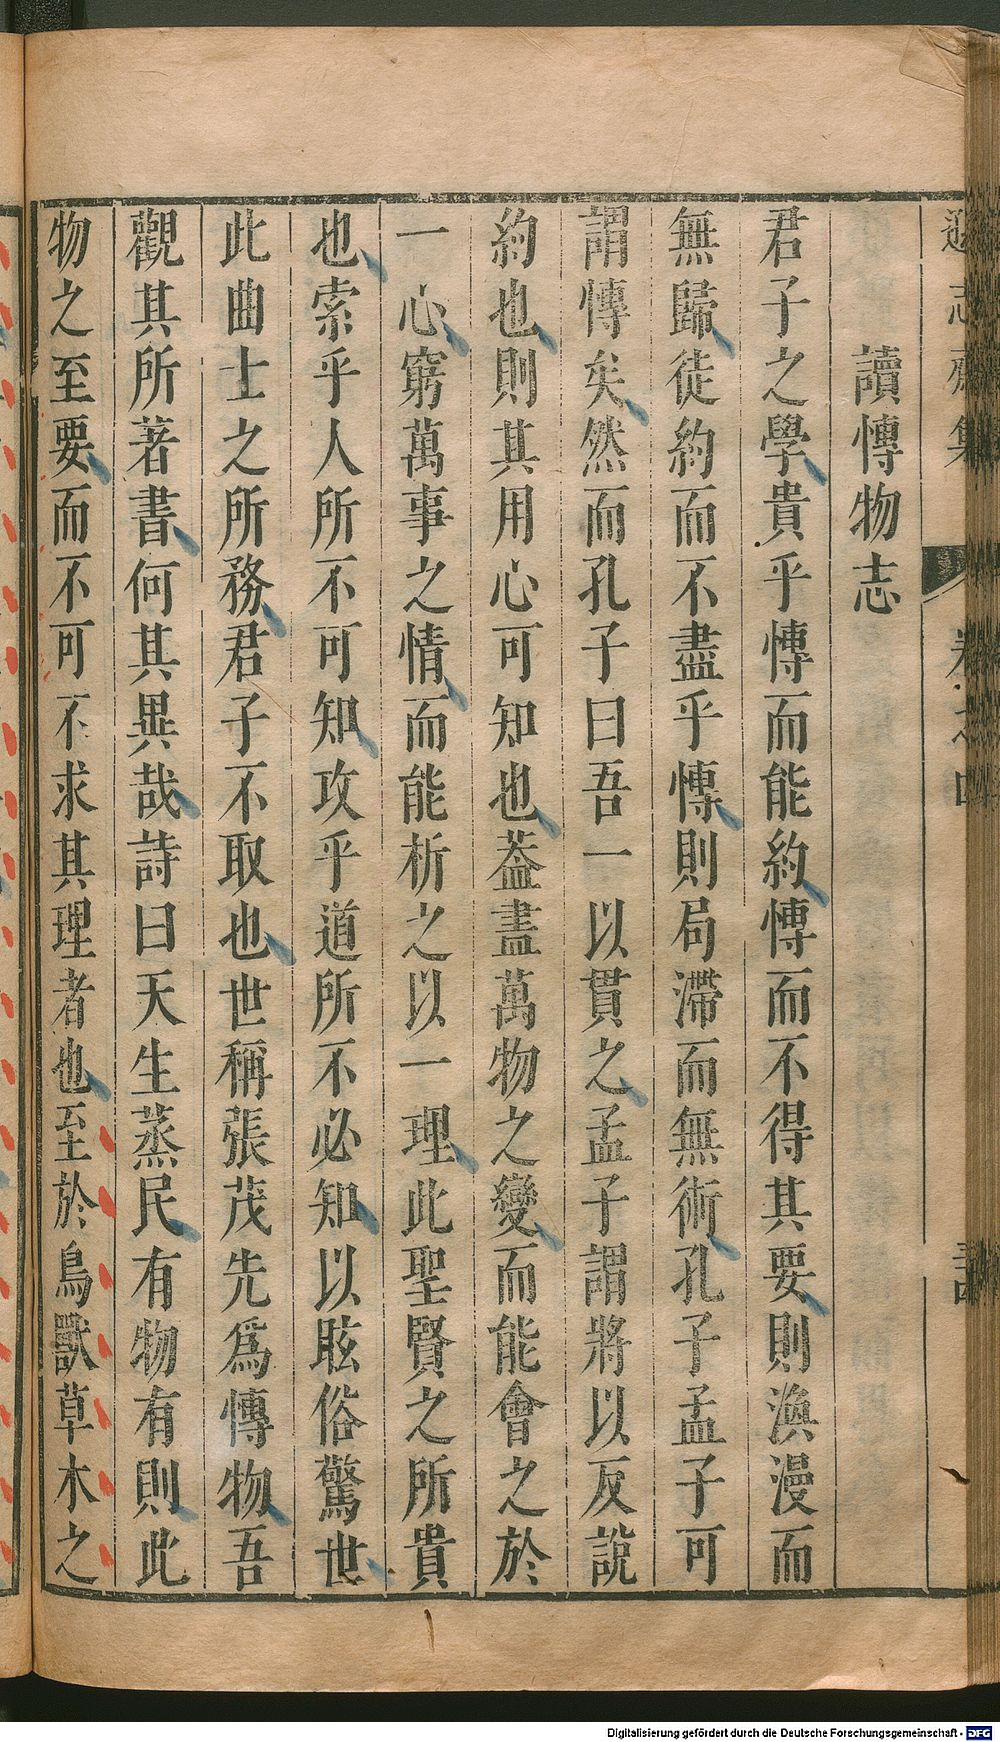 遜志齋集 卷之四
讀愽物志
君子之學貴乎愽而能約愽而不得其要則渙漫而
無歸徒約而不盡乎愽則局滯而無術孔子孟子可
謂愽矣然而孔子曰吾一以貫之孟子謂將以反說
約也則其用心可知也葢盡萬物之變而能會之於
一心窮萬事之情而能析之以一理此聖賢之所貴
也索乎人所不可知攻乎道所不必知以眩俗驚世
此曲士之所務君子不取也世稱張茂先爲愽物吾
觀其所著書何其異哉詩曰天生蒸民有物有則此
物之至要而不可不求其理者也至於鳥獸草木之
Digitalisierung gefördert durch die Deutsche Forschungsgemeinschaft - DFG